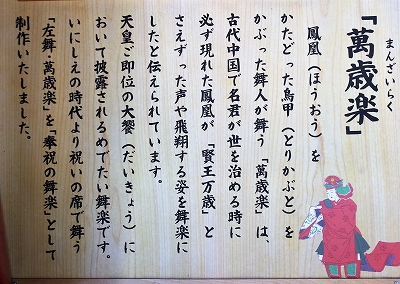 まんざいらく
「萬歳楽」
鳳凰（ほうおう）を
かたどった鳥甲（とりかぶと）を
かぶった舞人が舞う「萬歳楽」は、
古代中国で名君が世を治める時に
必ず現れた鳳凰が「賢王万歳」と
さえずった声や飛翔する姿を舞楽に
したと伝えられています。
天皇ご即位の大饗（だいきょう）に
おいて披露されるめでたい舞楽です。
いにしえの時代より祝いの席で舞う
「左舞・萬歳楽」を「奉祝の舞楽」として
制作いたしました。